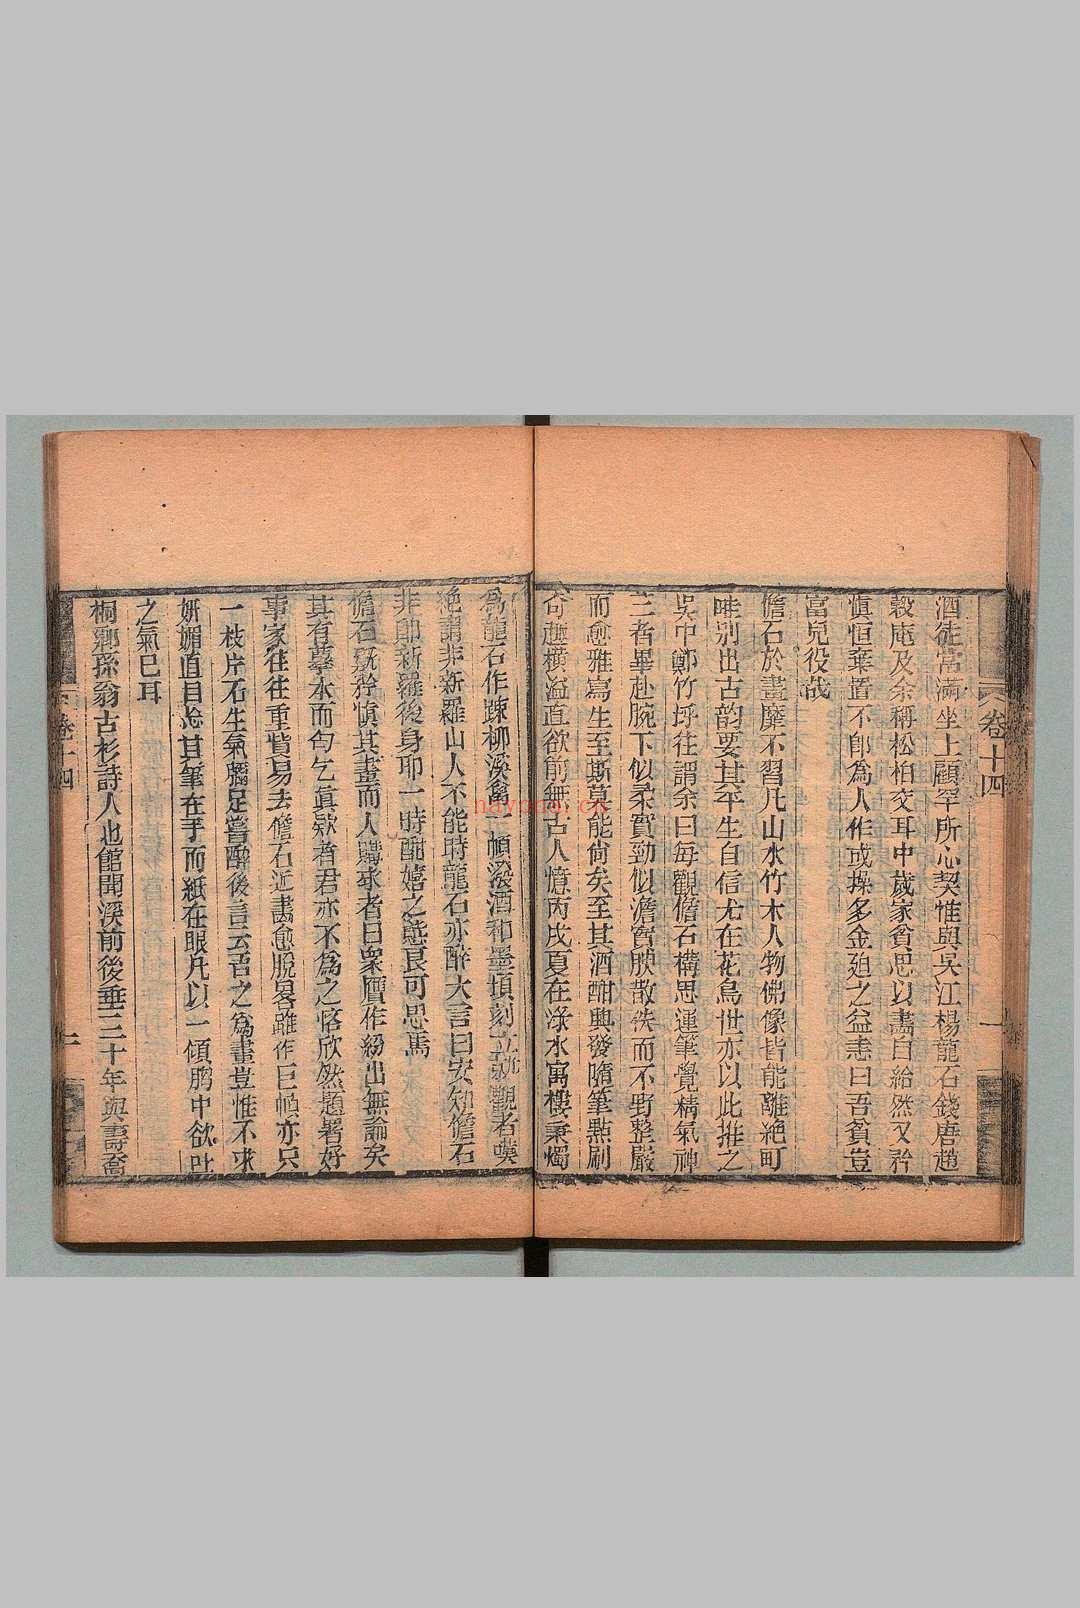 卷十四
一
酒徒常滿坐上顧罕所心契惟與吳江楊龍石錢唐趙
穀庵及余稱松柏交耳中歲家貧思以畫自給然又矜
慎恒棄置不卽為人作或操多金迫之益恚曰吾貧豈
富兒役哉
儋石於畫靡不習凡山水竹木人物佛像皆能離絕町
畦別出古韵要其平生自信尤在花鳥世亦以此推之
吳中鄭竹坪往謂余曰每觀儋石構思運筆覺精氣神
三者畢赴腕下似柔實勁似澹實腴散佚而不野整嚴
而愈雅寫生至斯莫能尙矣至其酒酣興發隨筆點刷
奇趣橫溢直欲前無古人憶丙戌夏在淥水寓樓秉燭
為龍石作疎柳溪禽一幀潑酒和墨頃刻立就觀者嘆
絕謂非新羅山人不能時龍石亦醉大言曰安知儋石
非卽新羅後身耶一時酣嬉之態良可思焉
儋石旣矜慎其畫而人購求者日衆贋作紛出無論矣
其有摹本而匄乞眞欵者君亦不為之恡欣然題署好
事家往往重貲易去儋石近畵愈脫畧雖作巨幀亦只
一枝片石生氣彌足嘗醉後言云吾之為畫豈惟不求
妍媚直目忘其筆在手而紙在眼凡以一傾胸中欲吐
之氣已耳
桐鄉孫翁古杉詩人也館聞溪前後垂三十年與壽喬
卷十四